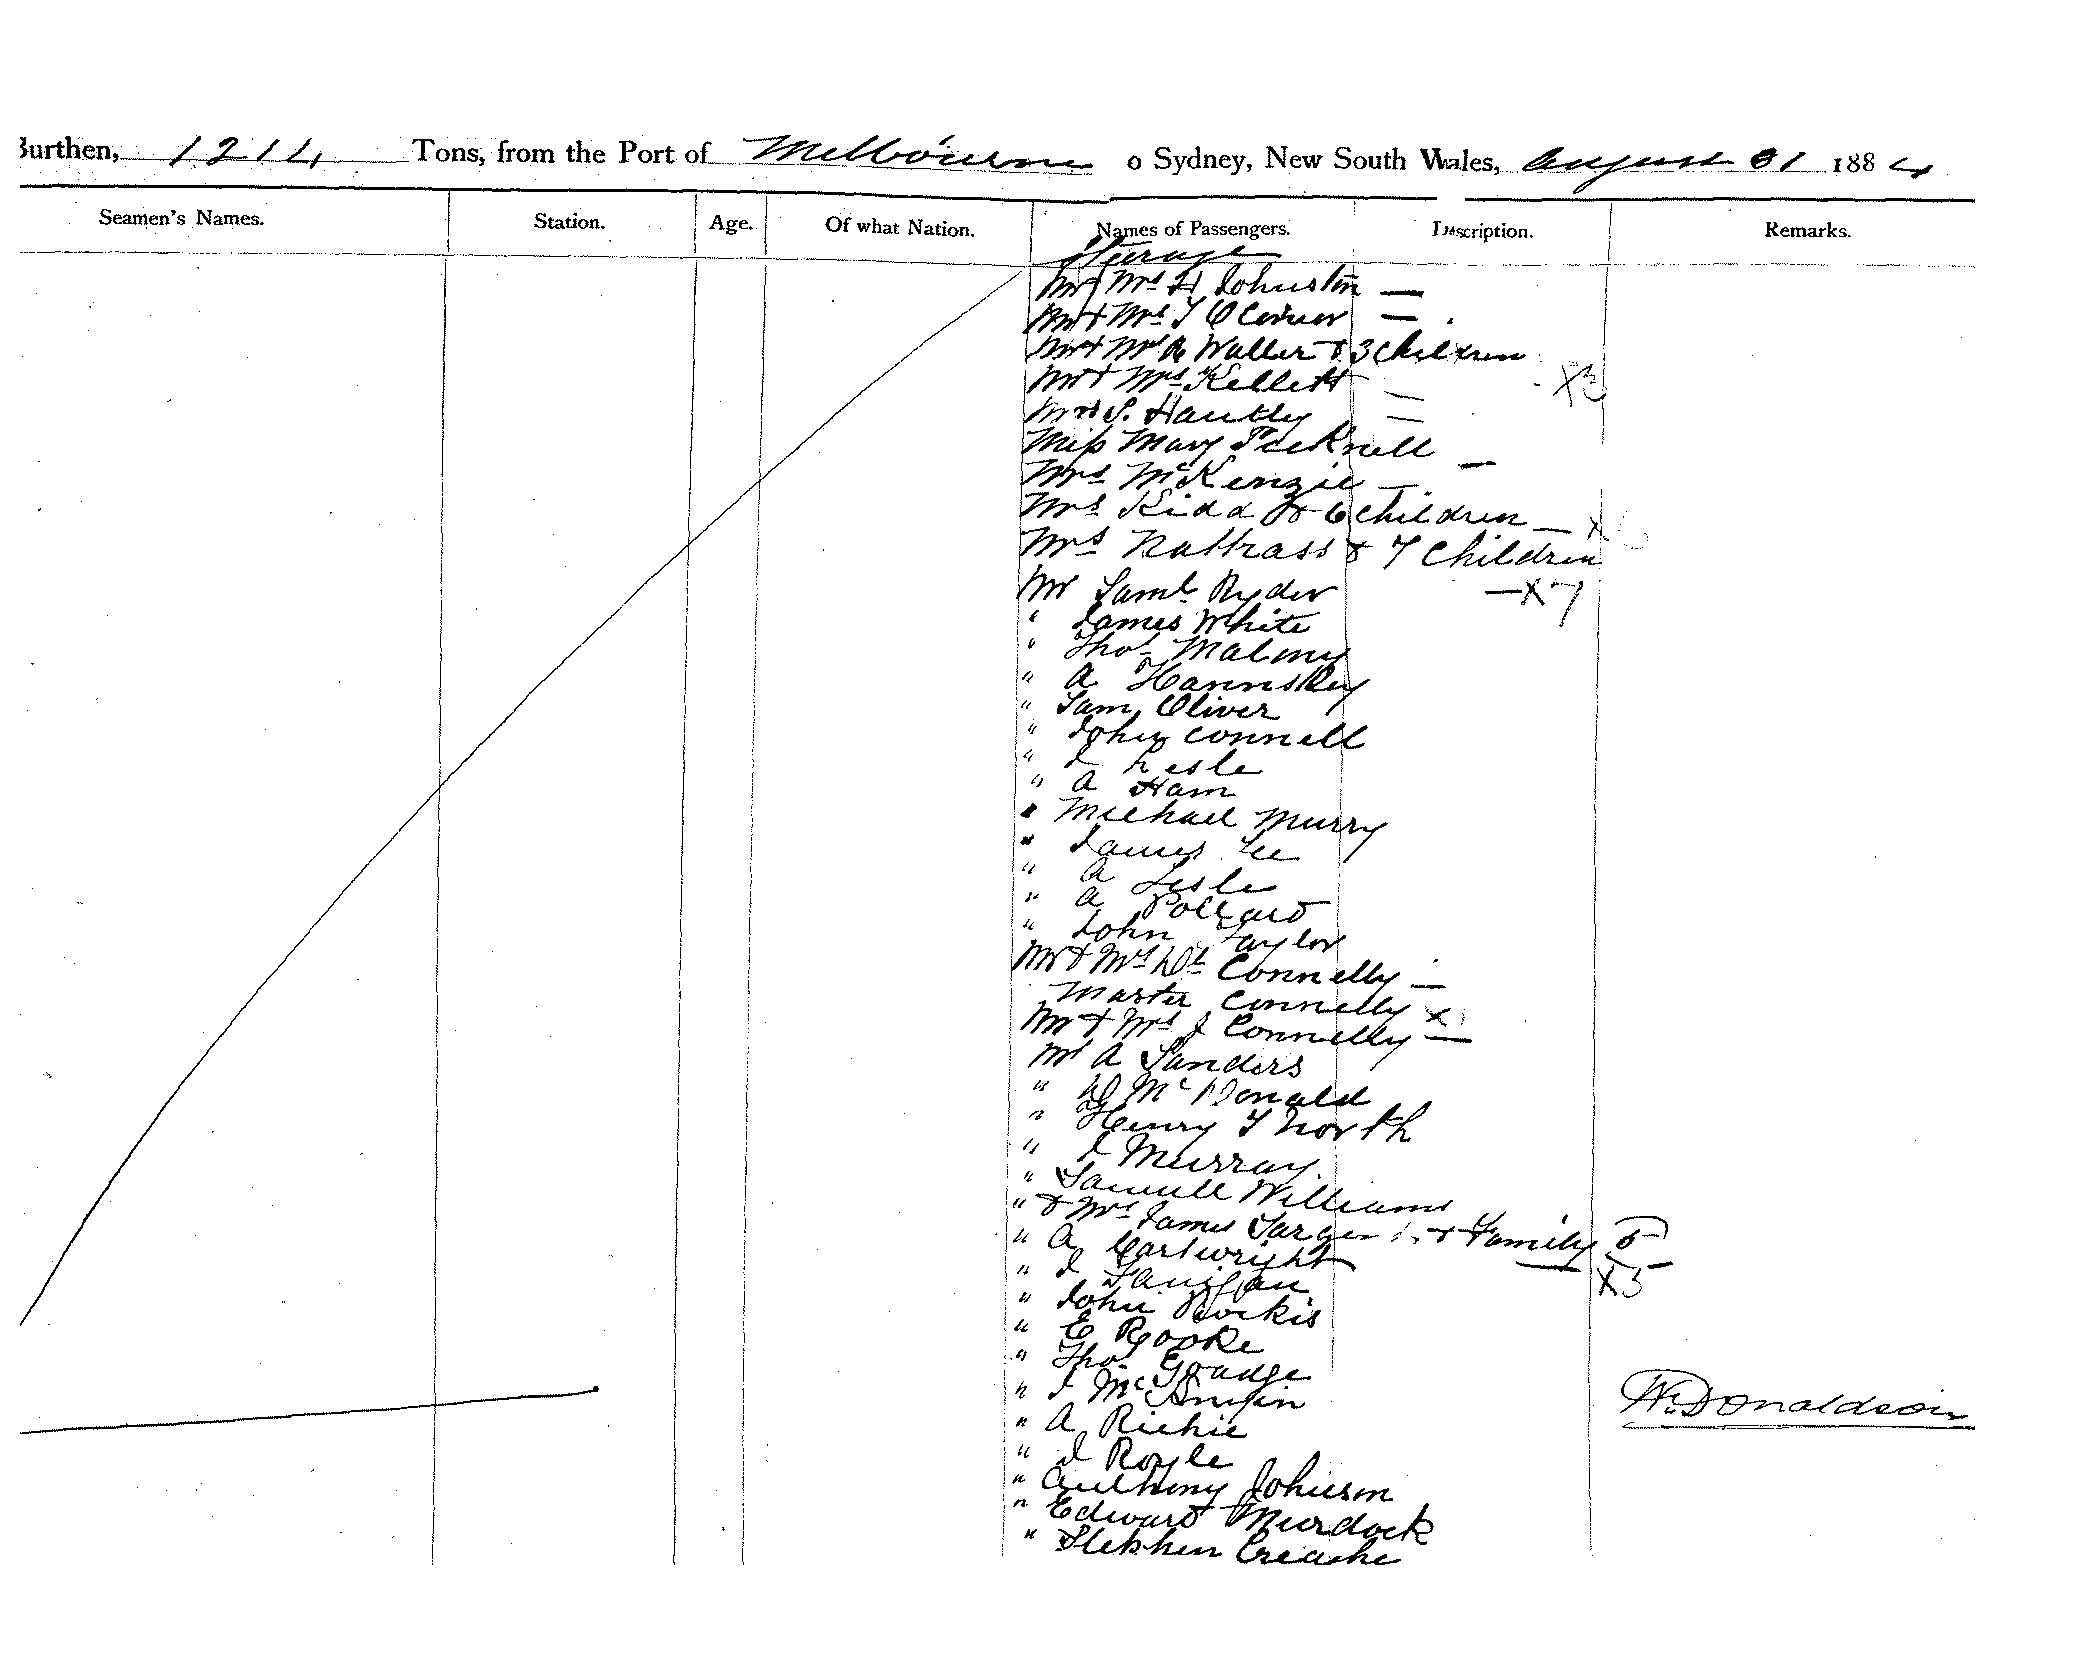 Burthen, 1214 Tons, from the Port of Melbourne o Sydney, New South Wales, August 31 1884
Seamen's Names. Station. Age. Of what Nation. Names of Passengers. Description. Remarks.
Sterage
Mr & Mrs H Johnston —
Mr & Mrs T O Connor —
Mr & Mrs R Waller & 3 Children
Mr & Mrs Kellett — X3
Mrs S. Hautly —
Miss Mary Tucknell —
Mrs McKenzie —
Mrs Kidd & 6 Children — X
Mrs Nattrass & 7 Children
— X 7
Mr Saml Ryder
" James White
" Thos Malony
" A
" Sam Oliver
" John Connell
" J Lesle
" A Ham
" Michael Murry
" James Lee
" A Lesle
" A Pollard
" John Taylor
Mr & Mrs Connelly —
Master Connelly X
Mr & Mrs J Connelly —
Mr A Sanders
" D McDonald
" Henry T North
" J Murray
" Samuell Williams
" & Mrs James Sargent & Family 5
" A Cartwright — X3
" J
" John
" E Rooke
" Thos
" J Mc
" A Richie
" J Royle
" Anthony Johnson
" Edward Murdock
" Stephen
W. Donaldson